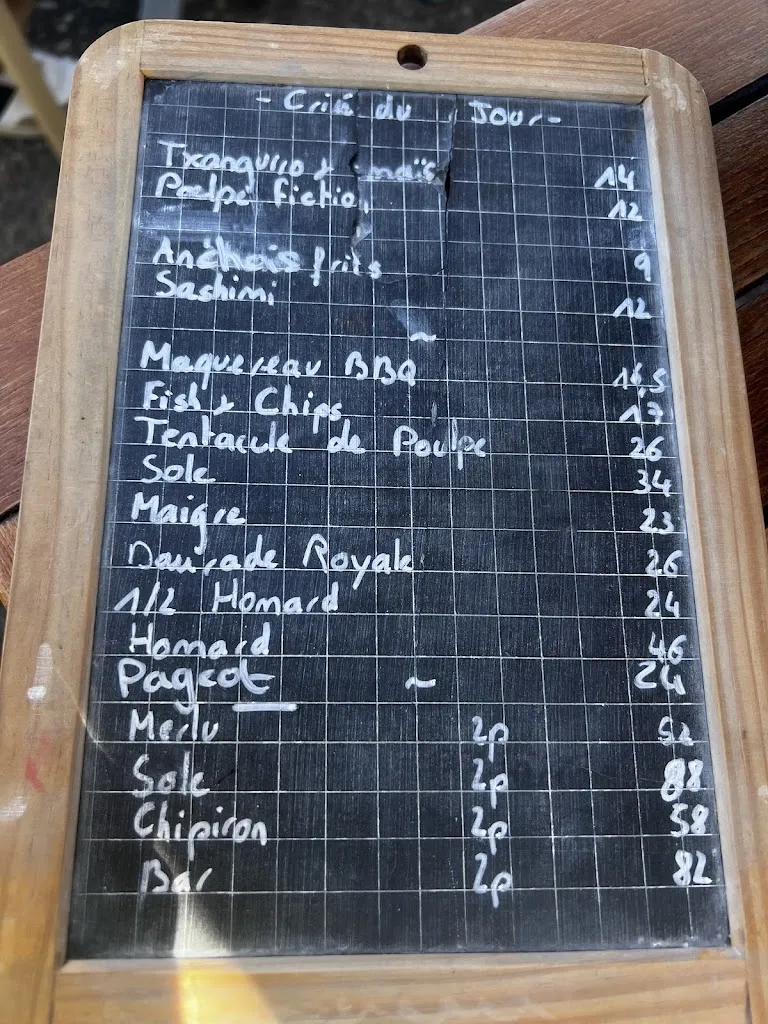 - Criée du Jour -
Txangurro & maïs 14
Poulpe fiction 12
Anchois frits 9
Sashimi 12
~
Maquereau BBQ 16,5
Fish & Chips 17
Tentacule de Poulpe 26
Sole 34
Maigre 23
Daurade Royale 26
1/2 Homard 24
Homard 46
Pageot 24
~
Merlu 2p 52
Sole 2p 88
Chipiron 2p 58
Bar 2p 82